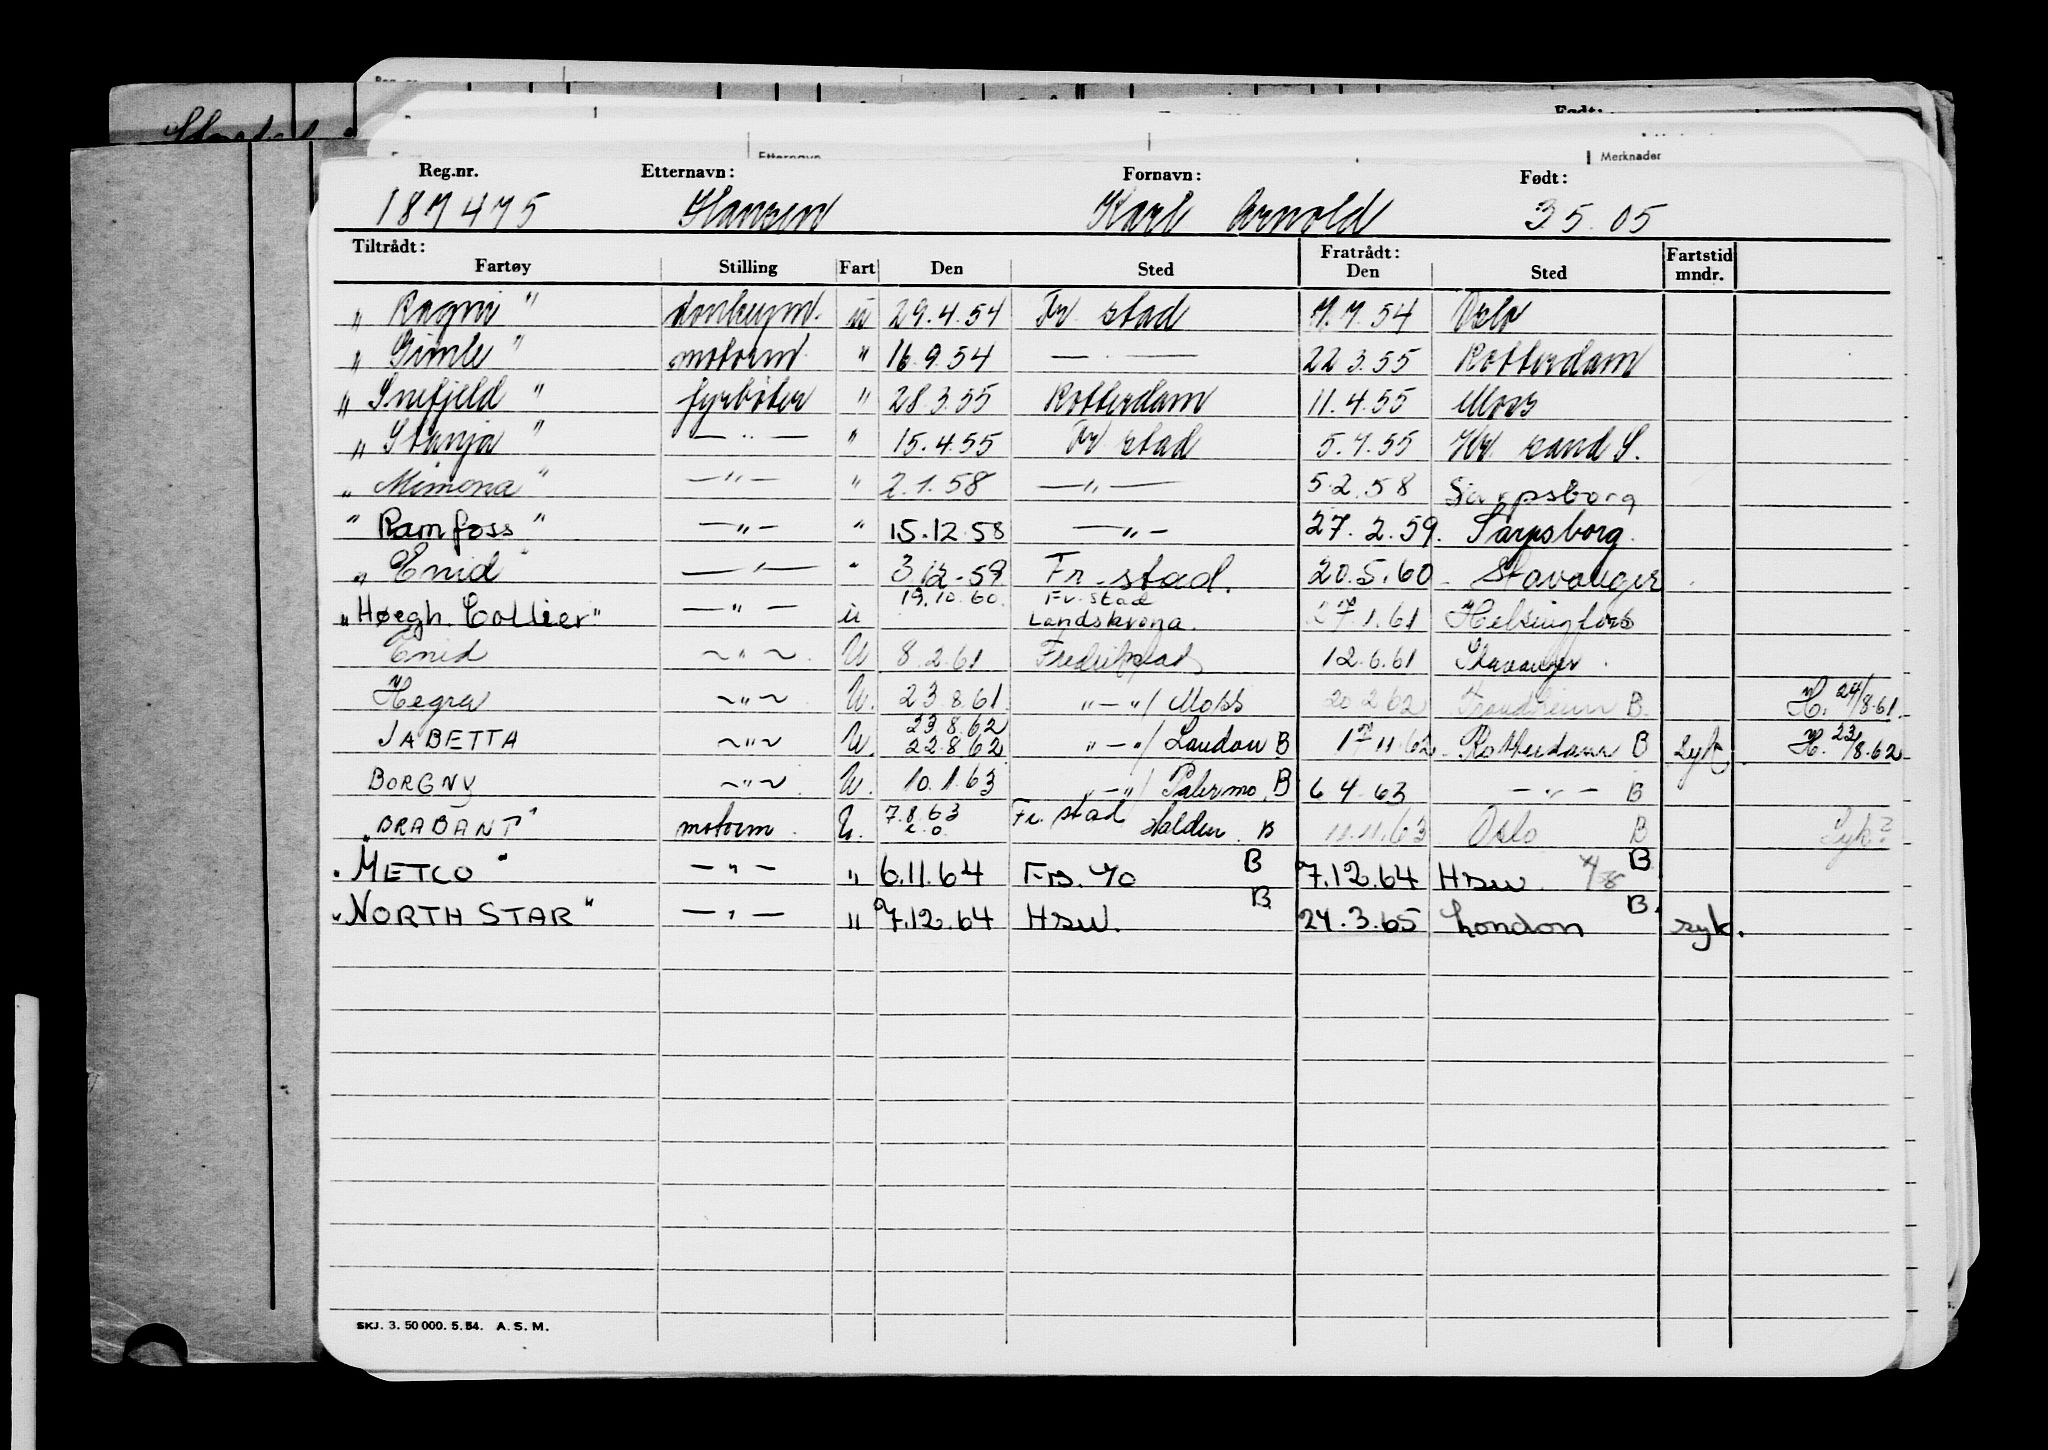 Født:
Etternavn
Merknader
Reg.nr. Etternavn: Fornavn: Født:
187475 Hansen Karl Arnold 3 5. 05
Tiltrådt: Fratrådt: Fartstid
Fartøy Stilling Fart Den Sted Den Sted mndr.
" Ragni " donkeym. u 29.4.54 Fr stad 7.7.54 Oslo
" Gimle " motorm. " 16.9.54 — . — 22 3.55 Rotterdam
" Snefjeld " fyrbøter " 28.3.55 Rotterdam 11.4.55 Moss
" Stanja " — " — " 15.4.55 Fr stad 5.7.55 Kr. sand S.
" Mimona " — " — " 2.1.58 — " — 5.2.58 Sarpsborg
" Ramfoss " — " — " 15.12.58 — " — 27.2.59. Sarpsborg.
" Enid " — " — " 3.12.59 Fr. stad. 20.5.60 Stavanger
19.10.60. Fr. stad
" Høegh Collier " — " — u Landskrona. 27.1.61 Helsingfors
Enid ~ " ~ U 8.2.61 Fredrikstad 12.6.61 Stavanger
Hegra ~ " ~ U. 23.8.61 " — " / Moss 20.2.62 Trondheim B. H. 24/8.61.
23.8.62
JABETTA ~ " ~ U. 22.8.62 " — " / London B 17.11.62 Rotterdam B Syk. H. 23/8.62
BORGNY ~ " ~ U. 10.1.63 " — " / Palermo. B 6 4 63 — " — B
" BRABANT " motorm. U. 7.8.63 Fr. stad Halden. B 11.11.63 Oslo B Syk?
" METCO " — " — " 6.11.64 Frs. 40 B 7.12.64 Hsw. B
" NORTH STAR " — " — " 7.12.64 Hsw. B 24.3.65 London B. syk.
SKJ. 3. 50 000. 5. 54. A. S. M.